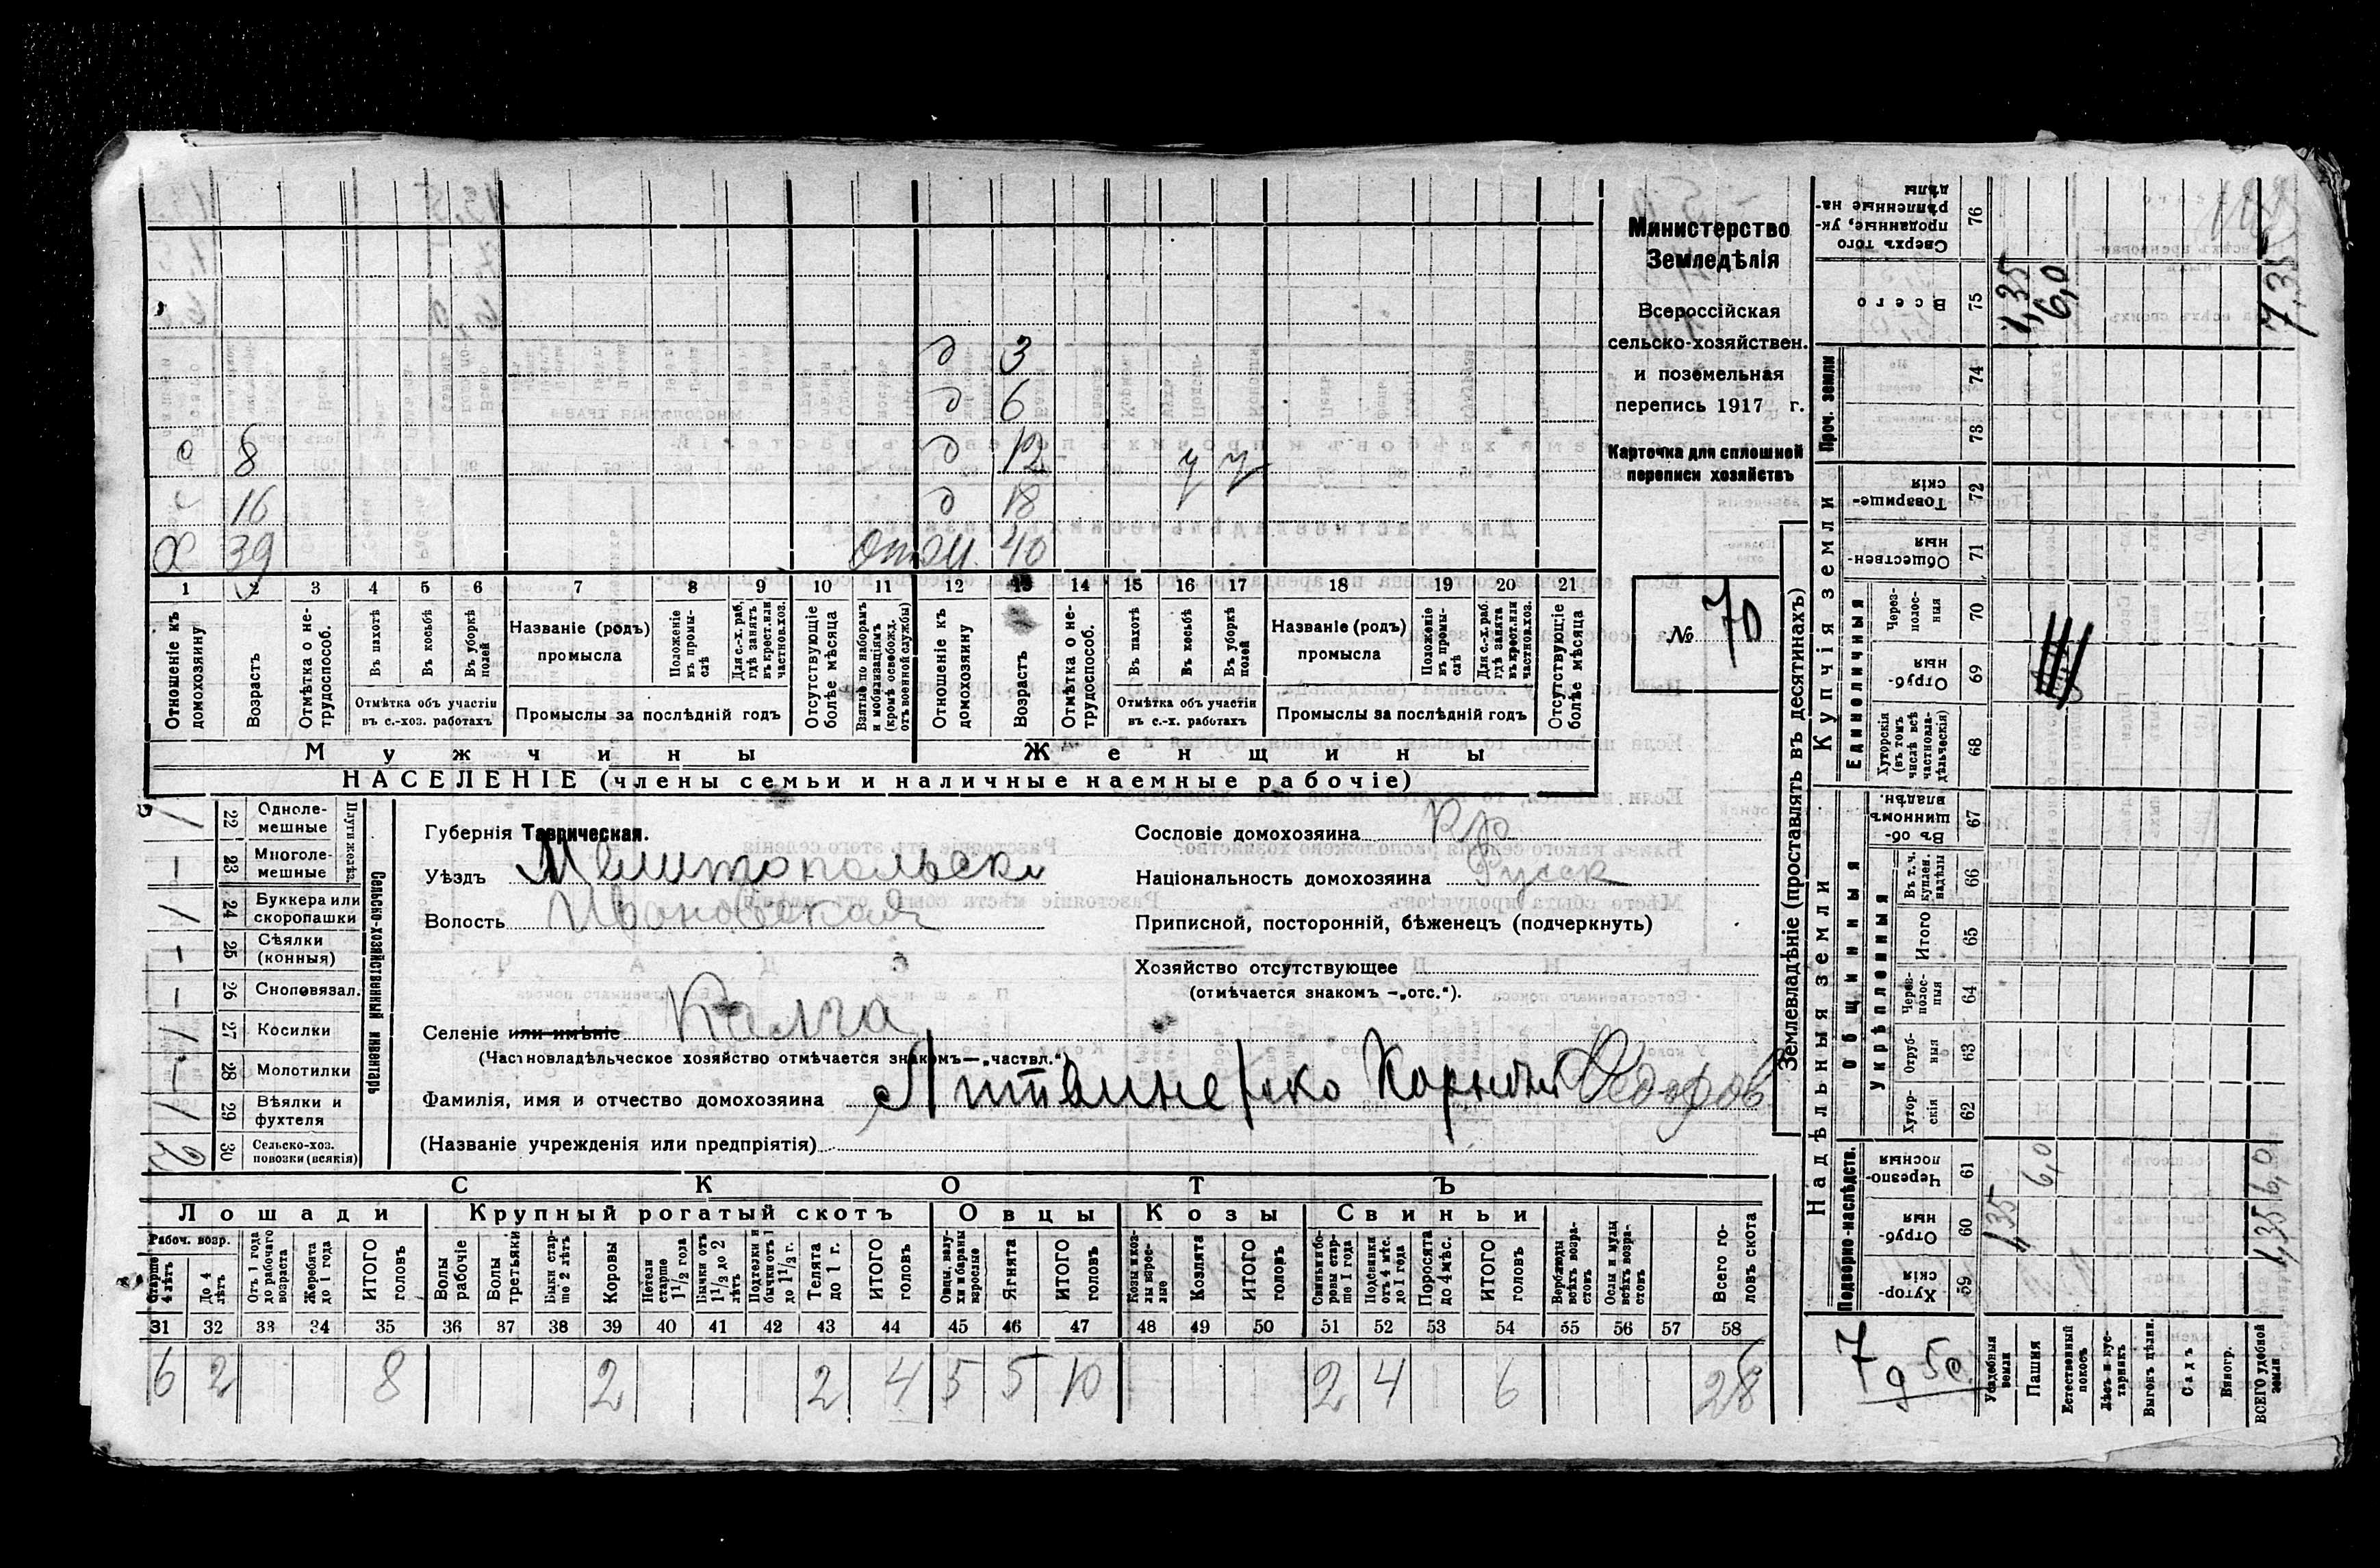 д 3
д 6
с 8 д 12 у у
с 16 д 18
Х 39 отсц. 40
1 2 3 4 5 6 7 8 9 10 11 12 13 14 15 16 17 18 19 20 21
Отношеніе къ домохозяину
Возрастъ
Отмѣтка о не-трудоспособ.
Въ пахотѣ
Въ косьбѣ
Въ уборкѣ полей
Отмѣтка объ участіи въ с.-хоз. работахъ
Названіе (родъ) промысла
Положеніе въ промы-слѣ
Для с.-х. раб. гдѣ занятъ въ крест. или частнов. хоз.
Промыслы за послѣдній годъ
Отсутствующіе болѣе мѣсяца
Взятые по наборамъ и мобилизаціямъ (кромѣ освобожд. отъ военной службы)
Отношеніе къ домохозяину
Возрастъ
Отмѣтка о не-трудоспособ.
Въ пахотѣ
Въ косьбѣ
Въ уборкѣ полей
Отмѣтка объ участіи въ с.-х. работахъ
Названіе (родъ) промысла
Положеніе въ промы-слѣ
Для с.-х. раб. гдѣ занята въ крест. или частнов. хоз.
Промыслы за послѣдній годъ
Отсутствующіе болѣе мѣсяца
Мужчины Женщины
НАСЕЛЕНІЕ (члены семьи и наличные наемные рабочіе)
Министерство
Земледѣлія
Всероссійская
сельско-хозяйствен.
и поземельная
перепись 1917 г.
Карточка для сплошной
переписи хозяйствъ
№ 70
Сельско-хозяйственный инвентарь
Плуги желѣз.
1 22 Одноле-мешные
— 23 Многоле-мешные
1 24 Буккера или скоропашки
— 25 Сѣялки (конныя)
— 26 Сноповязал.
1 27 Косилки
— 28 Молотилки
1 29 Вѣялки и фухтеля
2 30 Сельско-хоз. повозки (всякія)
Губернія Таврическая.
Уѣздъ Мелитопольск
Волость Ивановская
Селеніе или имѣніе Калга
(Частновладѣльческое хозяйство отмѣчается знакомъ—„частвл.“)
Фамилія, имя и отчество домохозяина Корній Федоров
(Названіе учрежденія или предпріятія)
Сословіе домохозяина Кр
Національность домохозяина Русск
Приписной, посторонній, бѣженецъ (подчеркнуть)
Хозяйство отсутствующее
(отмѣчается знакомъ —„отс.“).
СКОТЪ
Лошади Крупный рогатый скотъ Овцы Козы Свиньи
Рабоч. возр.
Старше 4 лѣтъ
До 4 лѣтъ
Отъ 1 года до рабочаго возраста
Жеребята до 1 года
ИТОГО головъ
Волы рабочіе
Волы третьяки
Быки стар-ше 2 лѣтъ
Коровы
Нетели старше 1 1/2 года
Бычки отъ 1 1/2 до 2 лѣтъ
Подтелки и бычки отъ 1 до 1 1/2 г.
Телята до 1 г.
ИТОГО головъ
Овцы, валу-хи и бараны взрослые
Ягнята
ИТОГО головъ
Козы и коз-лы взрос-лые
Козлята
ИТОГО головъ
Свиньи и бо-ровы стар-ше 1 года
Подсвинки отъ 4 мѣс. до 1 года
Поросята до 4 мѣс.
ИТОГО головъ
Верблюды всѣхъ возра-стовъ
Ослы и мулы всѣхъ возра-стовъ
Всего го-ловъ скота
31 32 33 34 35 36 37 38 39 40 41 42 43 44 45 46 47 48 49 50 51 52 53 54 55 56 57 58
6 2 8 2 2 4 5 5 10 2 4 6 28
Землевладѣніе (проставлять въ десятинахъ)
Надѣльныя земли Купчія земли
Подворно-наслѣдств.
Общинныя
Укрѣпленныя
Единоличныя
Проч. земли
Сверхъ того проданные, ук-рѣпленные на-дѣлы 76
Всего 75 1,35 6,0 7,35
74
73
Товарище-скія 72
Обществен-ныя 71
Через-полос-ныя 70
Отруб-ныя 69
Хуторскія (въ томъ числѣ всѣ частновла-дѣльческія) 68
Въ об-щинномъ владѣн. 67
Въ т. ч. куплен. надѣлы 66
Итого 65
Черезполос-ныя 64
Отруб-ныя 63
Хутор-скія 62
Черезпо-лосныя 61 6,0 6,0
Отруб-ныя 60 1,35 1,35
Хутор-скія 59
7 д 50
Усадебныя земли
Пашня
Естественный покосъ
Лѣсъ и кус-тарникъ
Выгонъ, цѣлин.
Садъ
Виногр.
ВСЕГО удобной земли